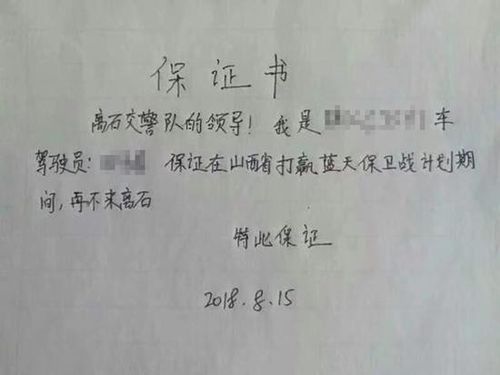 保证书
离石交警队的领导！我是车
驾驶员： 保证在山西省打赢蓝天保卫战计划期
间，再不来离石
特此保证
2018.8.15